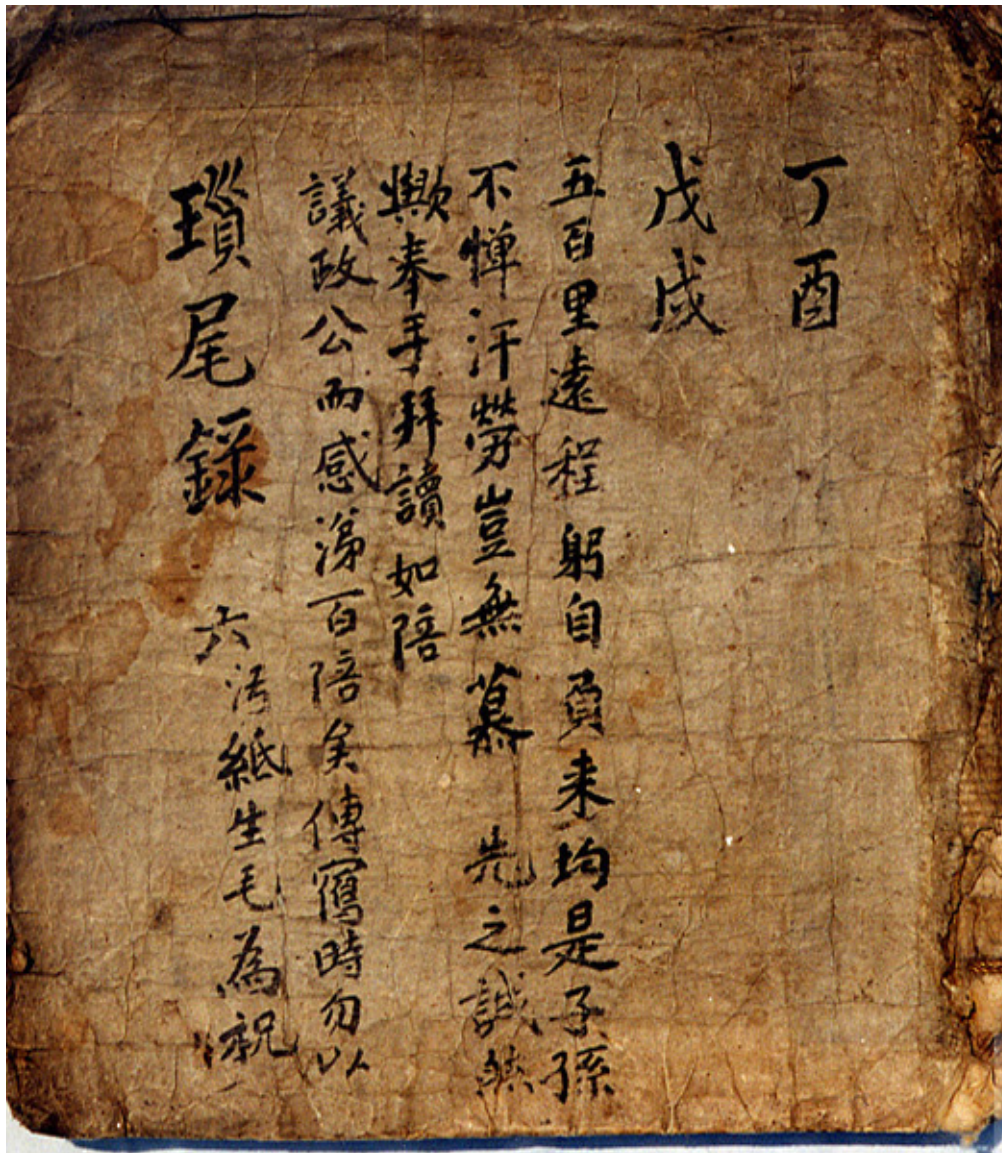 丁酉
戊戌
五百里遠程躬自負来均是子孫
不憚汗勞豈無慕 先之誠然
歟奉手拜讀如陪
議政公而感涕百陪矣傳寫時勿以
汚紙生毛為祝
瑣尾錄 六